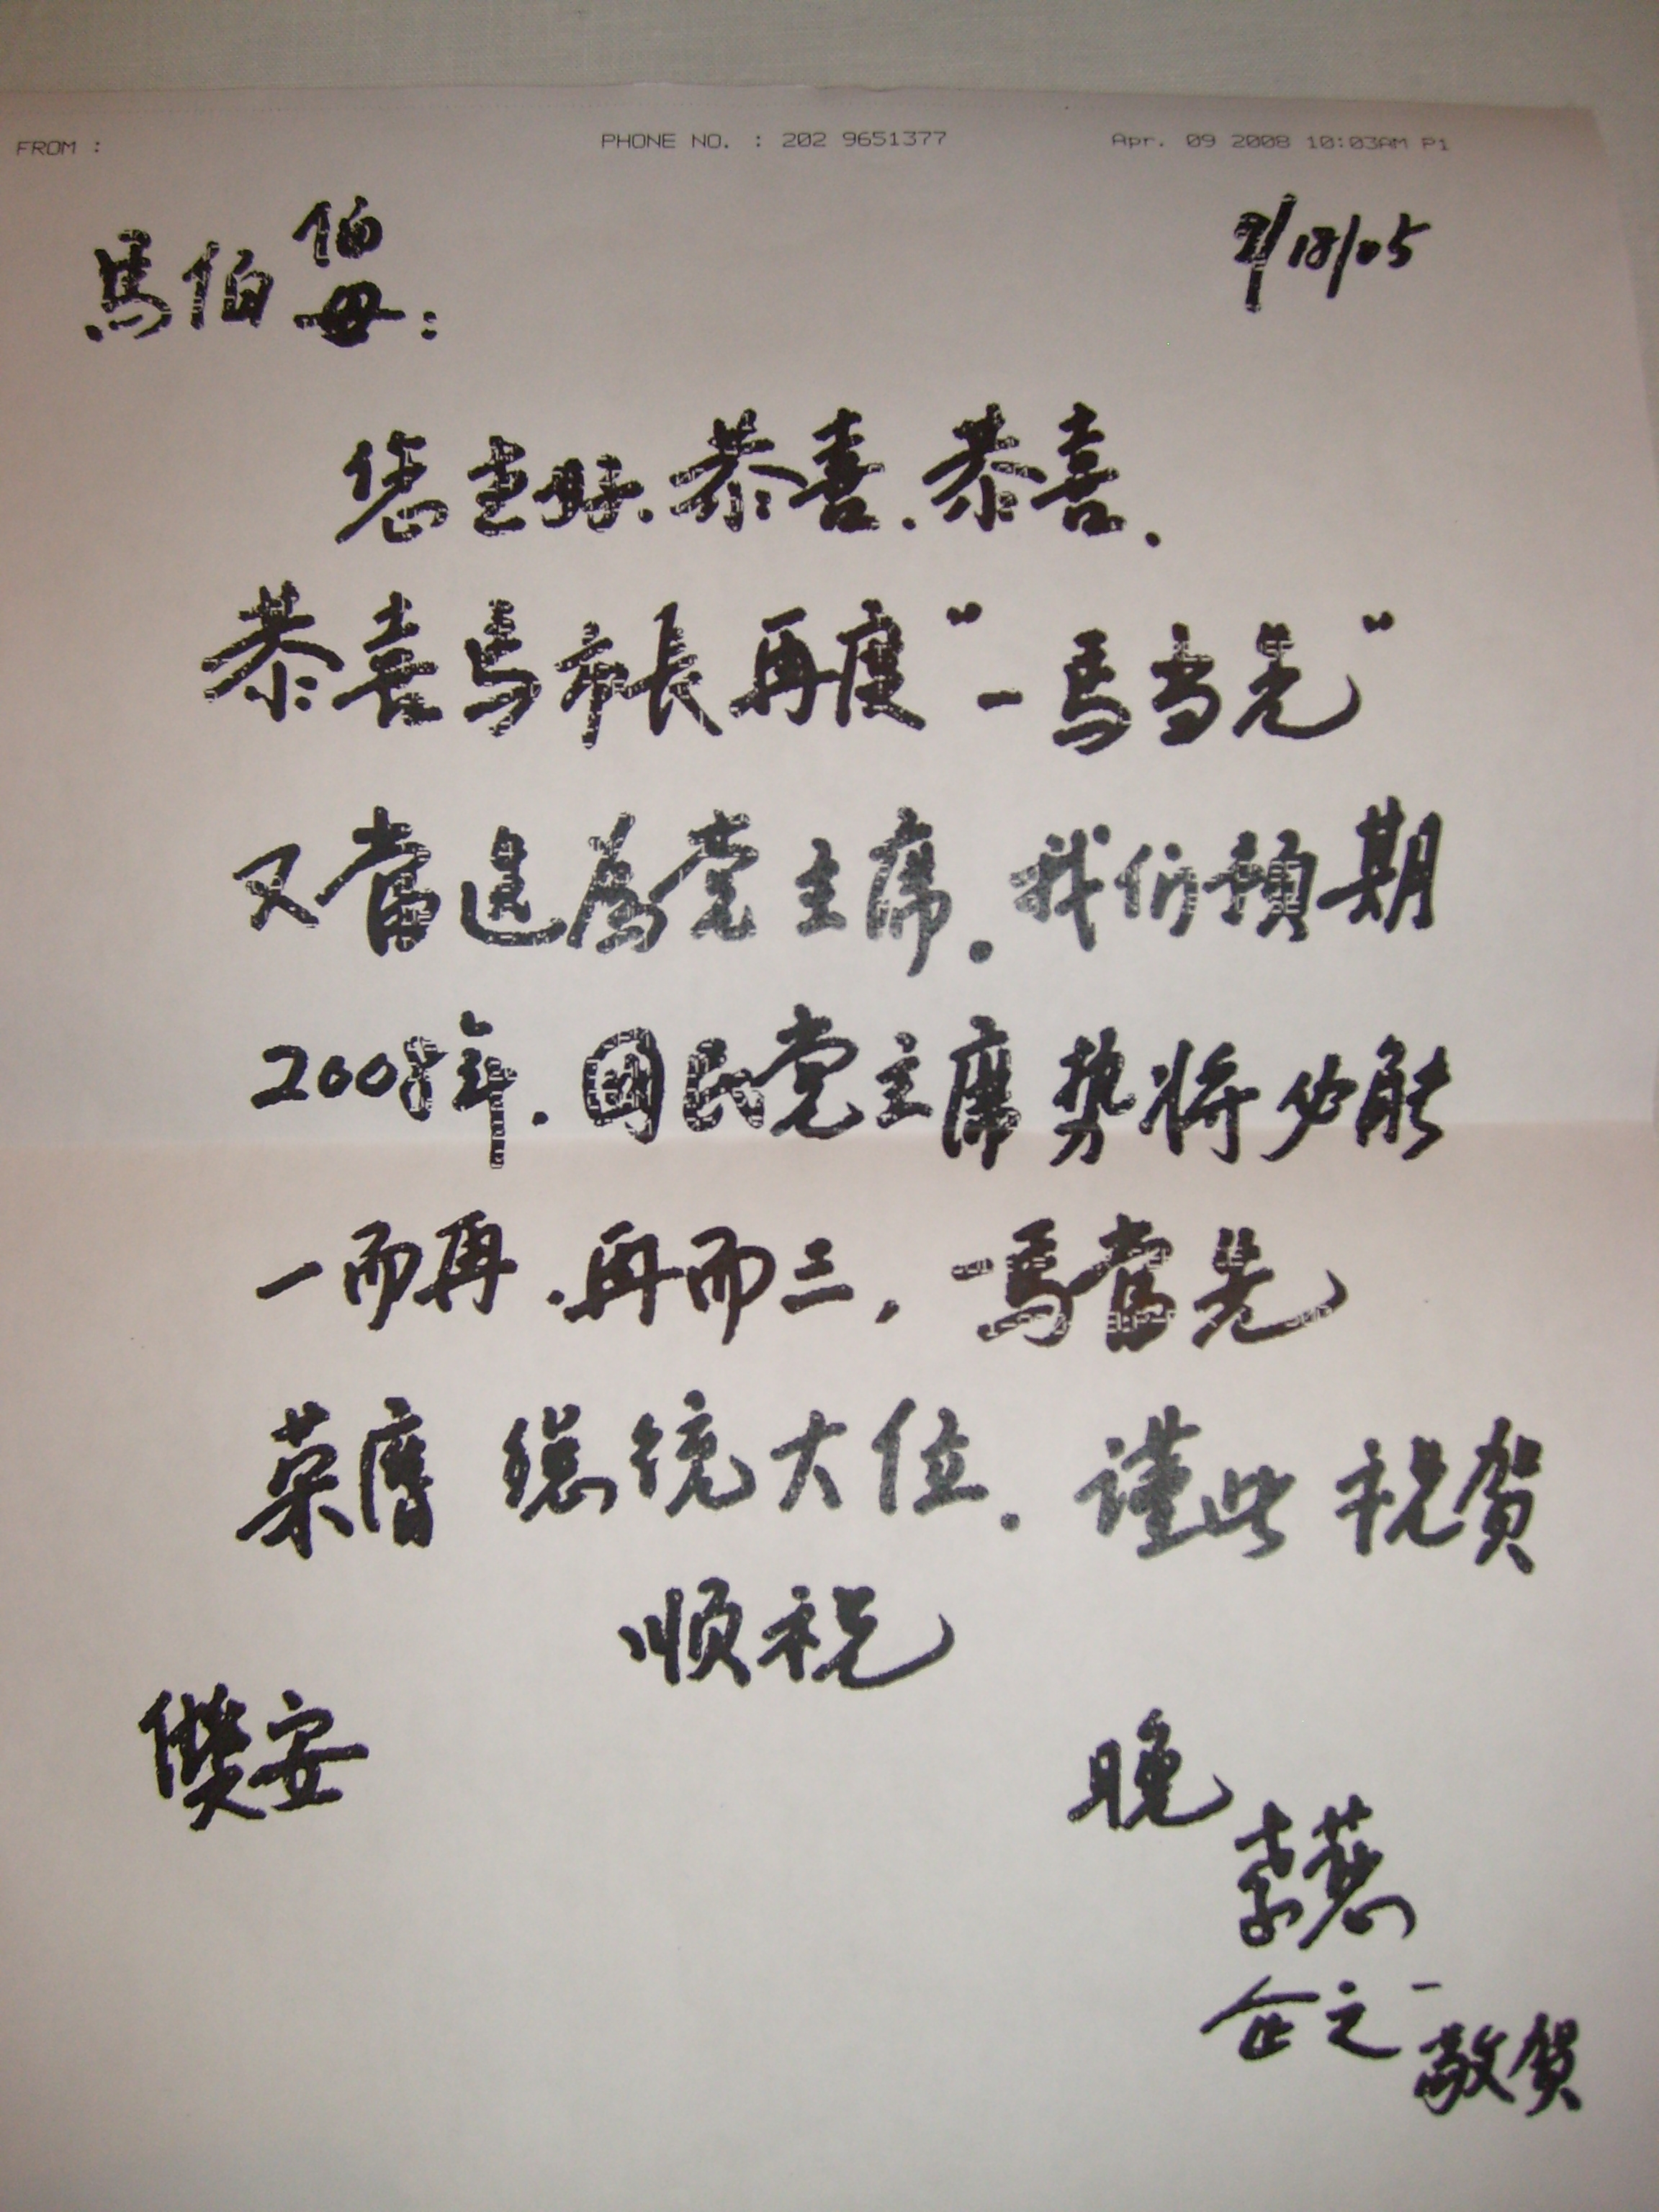 FROM : PHONE NO. : 202 9651377 Apr. 09 2008 10:03AM P1
7/18/05
馬伯伯母:
您全好.恭喜.恭喜.
恭喜馬市長再度"一馬当先"
又當选為党主席.我们預期
2008年.國民党主席势將必能
一而再.再而三,一馬當先
荣膺 總統大位.謹此 祝賀
順祝
儷安
晚
李慧
企之 敬賀